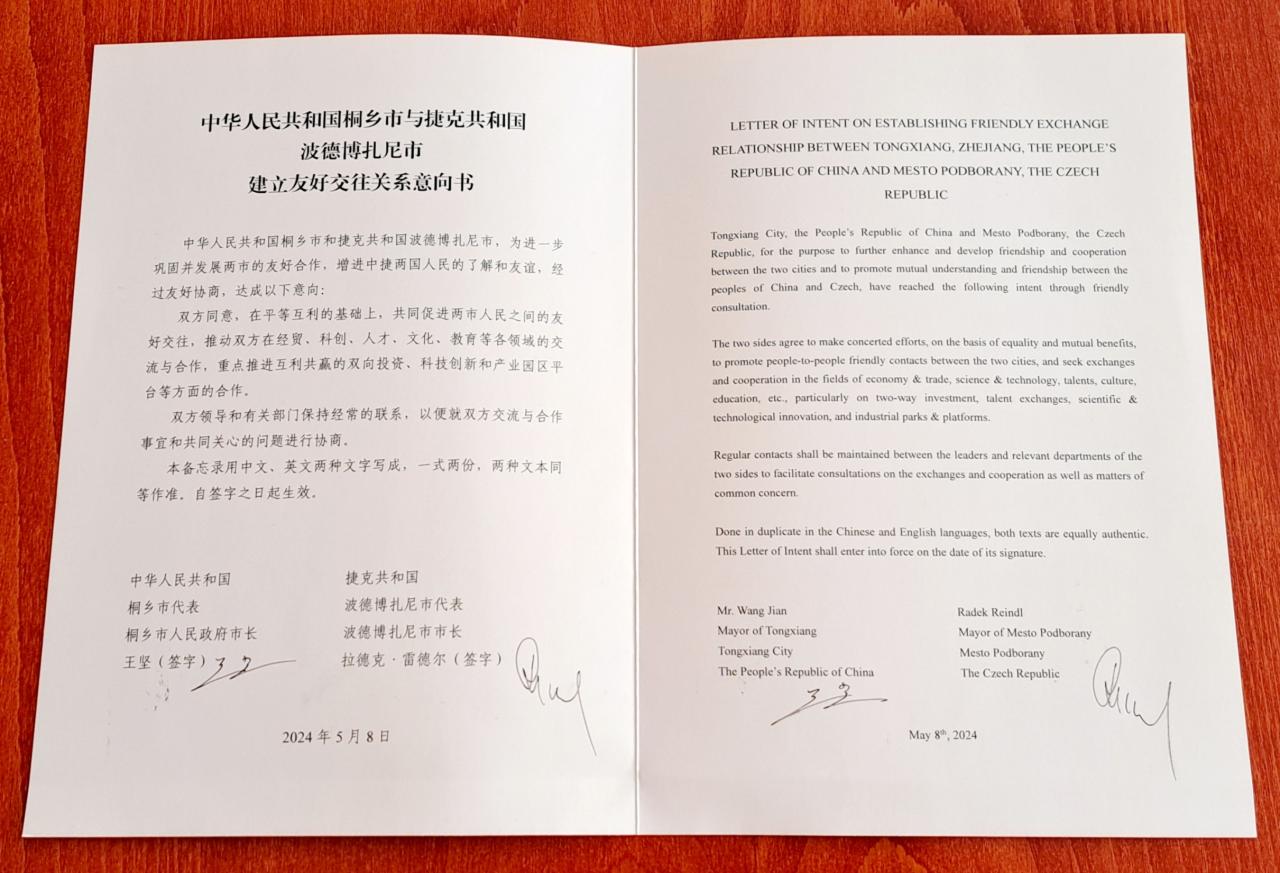 中华人民共和国桐乡市与捷克共和国
波德博扎尼市
建立友好交往关系意向书
中华人民共和国桐乡市和捷克共和国波德博扎尼市，为进一步
巩固并发展两市的友好合作，增进中捷两国人民的了解和友谊，经
过友好协商，达成以下意向：
双方同意，在平等互利的基础上，共同促进两市人民之间的友
好交往，推动双方在经贸、科创、人才、文化、教育等各领域的交
流与合作，重点推进互利共赢的双向投资、科技创新和产业园区平
台等方面的合作。
双方领导和有关部门保持经常的联系，以便就双方交流与合作
事宜和共同关心的问题进行协商。
本备忘录用中文、英文两种文字写成，一式两份，两种文本同
等作准。自签字之日起生效。
中华人民共和国 捷克共和国
桐乡市代表 波德博扎尼市代表
桐乡市人民政府市长 波德博扎尼市市长
王坚（签字） 拉德克·雷德尔（签字）
2024 年 5 月 8 日
LETTER OF INTENT ON ESTABLISHING FRIENDLY EXCHANGE
RELATIONSHIP BETWEEN TONGXIANG, ZHEJIANG, THE PEOPLE'S
REPUBLIC OF CHINA AND MESTO PODBORANY, THE CZECH
REPUBLIC
Tongxiang City, the People's Republic of China and Mesto Podborany, the Czech
Republic, for the purpose to further enhance and develop friendship and cooperation
between the two cities and to promote mutual understanding and friendship between the
peoples of China and Czech, have reached the following intent through friendly
consultation.
The two sides agree to make concerted efforts, on the basis of equality and mutual benefits,
to promote people-to-people friendly contacts between the two cities, and seek exchanges
and cooperation in the fields of economy & trade, science & technology, talents, culture,
education, etc., particularly on two-way investment, talent exchanges, scientific &
technological innovation, and industrial parks & platforms.
Regular contacts shall be maintained between the leaders and relevant departments of the
two sides to facilitate consultations on the exchanges and cooperation as well as matters of
common concern.
Done in duplicate in the Chinese and English languages, both texts are equally authentic.
This Letter of Intent shall enter into force on the date of its signature.
Mr. Wang Jian Radek Reindl
Mayor of Tongxiang Mayor of Mesto Podborany
Tongxiang City Mesto Podborany
The People's Republic of China The Czech Republic
May 8th, 2024